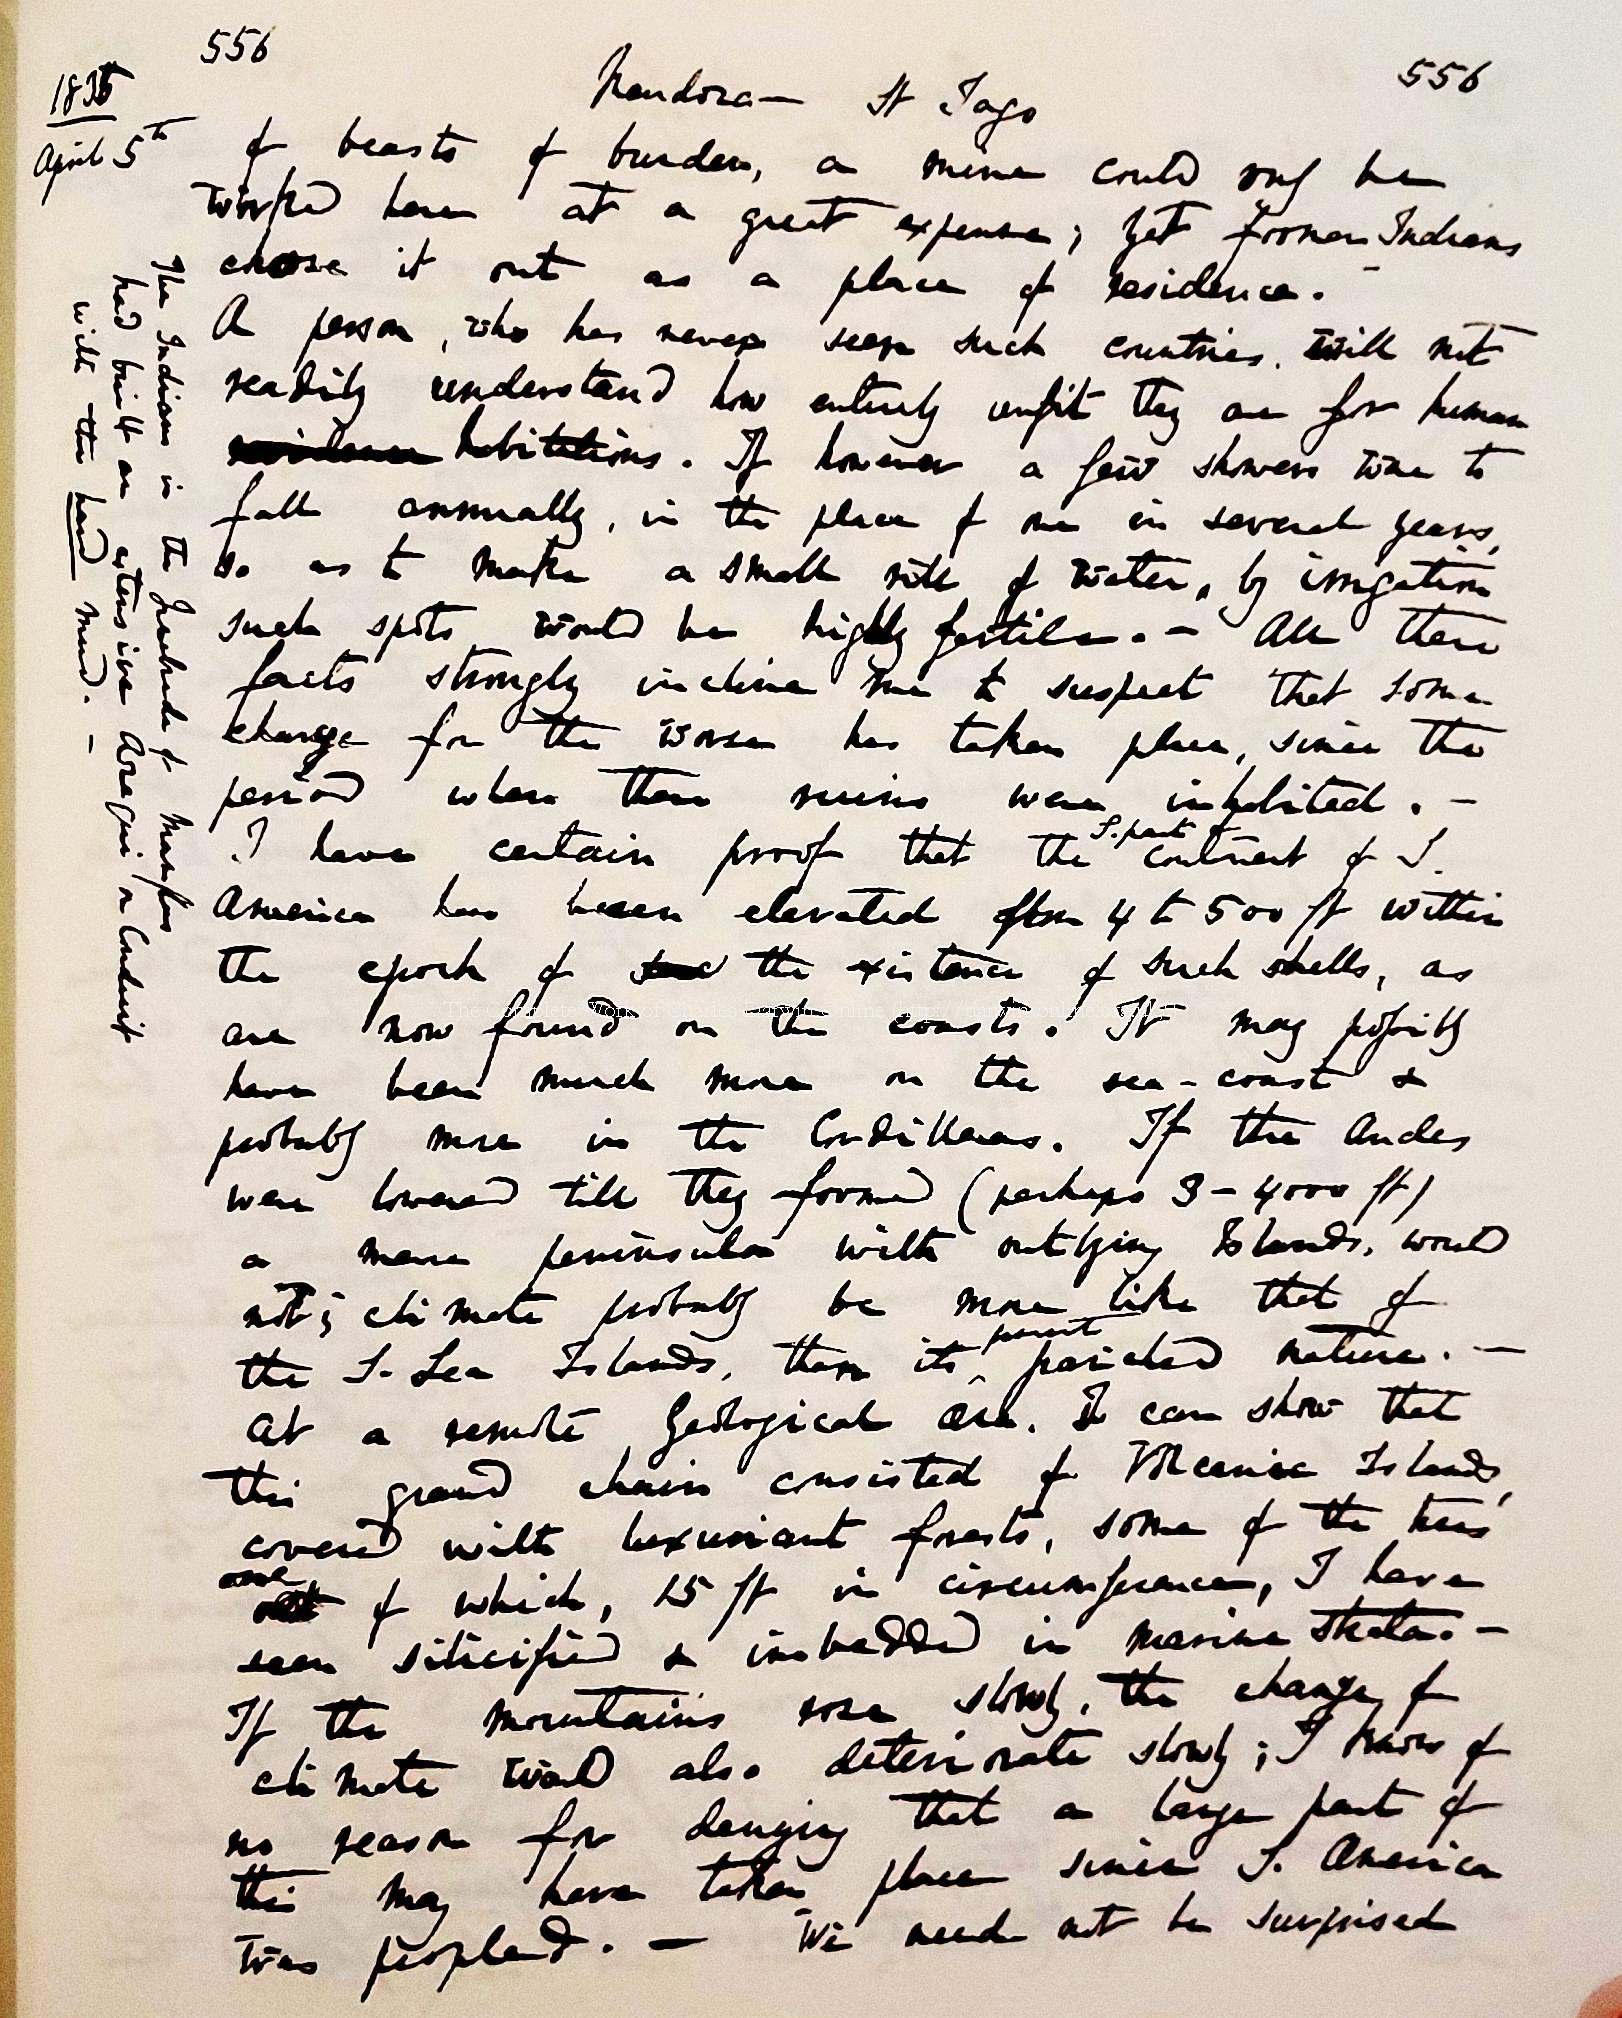 556
556
1835
Mendoza — St Jago
April 5th
of beasts of burden, a mine could only be
worked here at a great expense; yet former Indians
chose it out as a place of residence. —
A person, who has never seen such countries, will not
readily understand how entirely unfit they are for human
residence habitations. If however a few showers were to
fall annually, in the place of one in several years,
so as to make a small rill of water, by irrigation
such spots would be highly fertile. — All these
facts strongly incline me to suspect that some
change for the worse has taken place, since the
period when these ruins were inhabited. —
I have certain proof that the S. part of continent of S.
America has been elevated from 4 to 500 ft within
the epoch of the existence of such shells, as
are now found on the coasts. It may possibly
have been much more on the sea-coast &
probably more in the Cordilleras. If the Andes
were lowered till they formed (perhaps 3-4000 ft)
a mere peninsula with outlying Islands, would
not ye climate probably be more like that of
the S. Sea Islands, than its present parched nature. —
At a remote Geological æra, I can show that
this grand chain consisted of Volcanic Islands,
covered with luxuriant forests, some of the trees
one of which, 15 ft in circumference, I have
seen silicified & imbedded in marine strata. —
If the mountains rose slowly, the change of
climate would also deteriorate slowly; I know of
no reason for denying that a large part of
this may have taken place since S. America
was peopled. — We need not be surprised
The Indians in the
had built an extensive Acequi or Conduit
with the hard mud. —